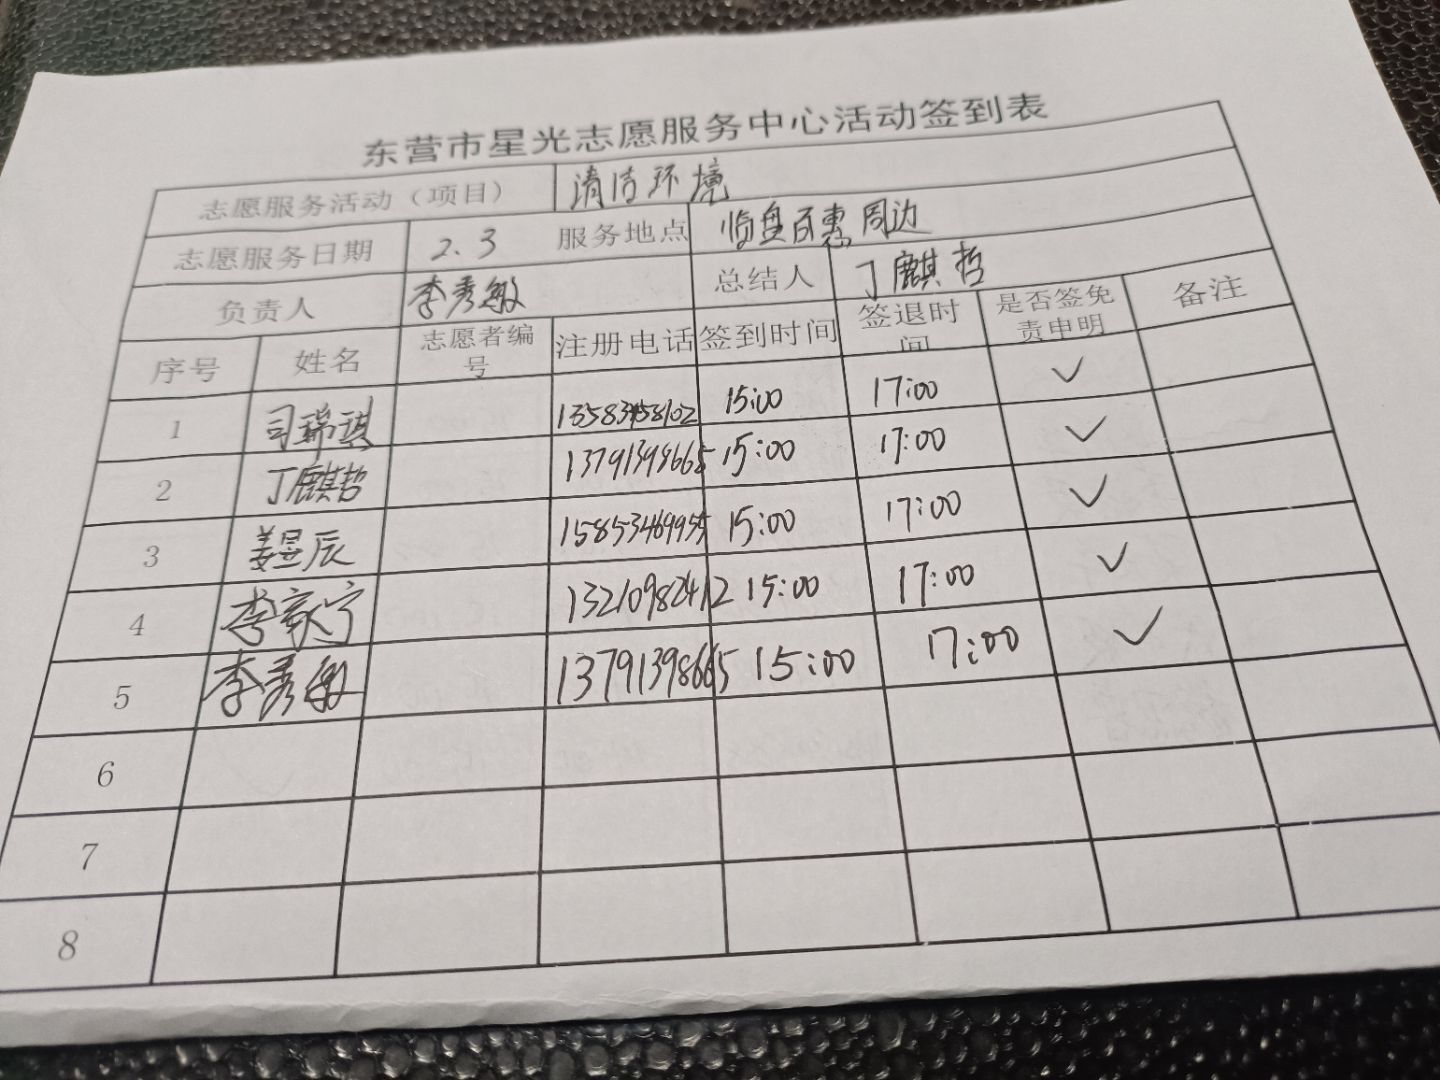 东营市星光志愿服务中心活动签到表
志愿服务活动（项目） 清洁环境
志愿服务日期 2.3 服务地点 临盘百惠周边
负责人 李秀敏 总结人 丁麒哲
序号 姓名 志愿者编号 注册电话 签到时间 签退时间 是否签免责申明 备注
1 司瑞琪 15:00 17:00 ✓
2 丁麒哲 13791398665 15:00 17:00 ✓
3 姜昱辰 15853469955 15:00 17:00 ✓
4 李家宁 13210982412 15:00 17:00 ✓
5 李秀敏 13791398665 15:00 17:00 ✓
6
7
8